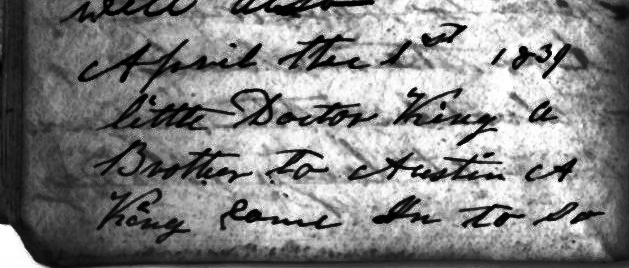 well also
April the 1st 1839
little Doctor King a
Brother to Austin A
King Came In to So